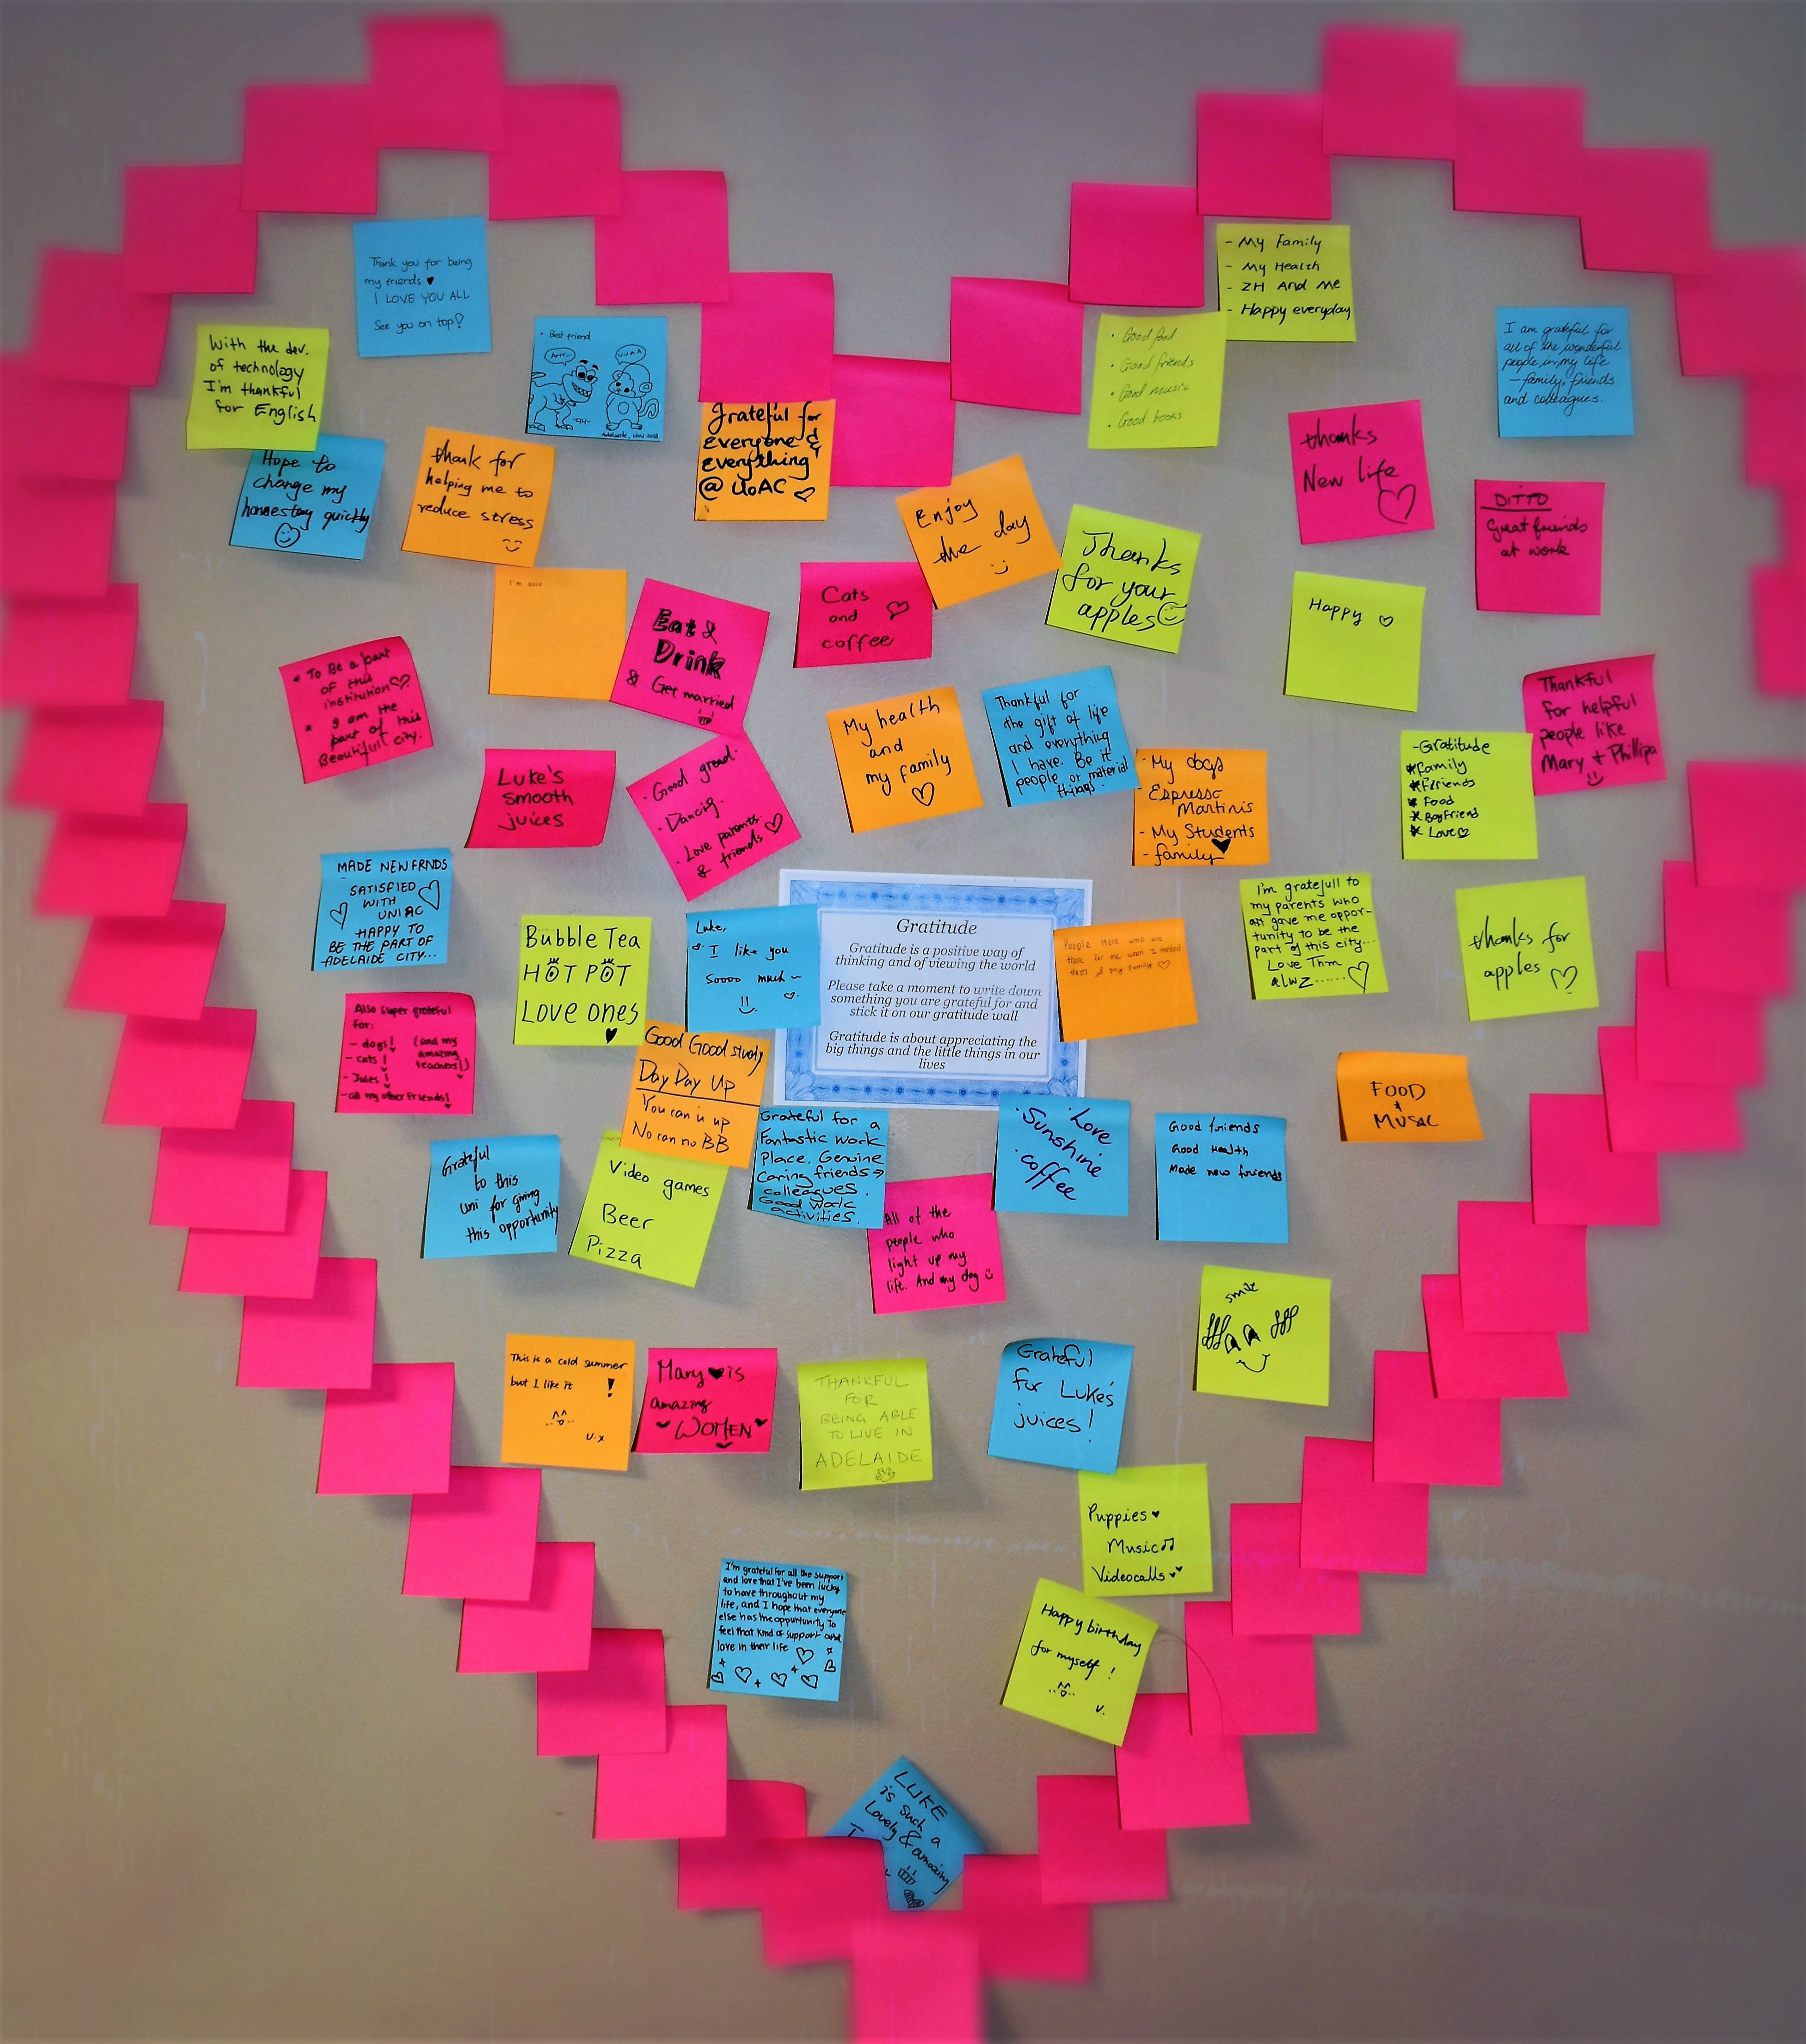 Thank you for being
my friends
I LOVE YOU ALL
See you on top!
- My Family
- My Health
- ZH And Me
- Happy everyday
With the dev.
of technology
I'm thankful
for English
• Best friend
Arrr..
UUAA
Adelaide, Nov 2018
• Good food
• Good friends
• Good music
• Good books
I am grateful for
all of the wonderful
people in my life
- family, friends
and colleagues.
Hope to
change my
homestay quickly
thank for
helping me to
reduce stress
grateful for
everyone &
everything
@ UoAC
Enjoy
the day
Thanks
for your
apples
thanks
New life
DITTO
Great friends
at work
I'm
Eat &
Drink
& Get married
Cats
and
coffee
Happy
• To Be a part
of this
institution
• I am the
part of this
Beautiful city.
Luke's
smooth
juices
• Good great.
• Dancing.
• Love parents
& friends
My health
and
my family
Thankful for
the gift of life
and everything
I have. Be it
people or material
things.
- My dogs
- Espresso
Martinis
- My Students
- family
- Gratitude
* Family
* Friends
* Food
* Boyfriend
* Love
Thankful
for helpful
people like
Mary + Phillipa
MADE NEW FRNDS
SATISFIED
WITH
UNI AC
HAPPY TO
BE THE PART OF
ADELAIDE CITY...
Bubble Tea
HOT POT
Love ones
Luke,
I like you
Soooo much ~
Gratitude
Gratitude is a positive way of
thinking and of viewing the world
Please take a moment to write down
something you are grateful for and
stick it on our gratitude wall
Gratitude is about appreciating the
big things and the little things in our
lives
People Here who was
there for me when I needed
them & My Family
I'm gratefull to
my parents who
gave me oppor-
tunity to be the
part of this city...
Love Thm
alwz......
thanks for
apples
Also super grateful
for:
- dogs! (and my
- cats! amazing
teachers!)
- Jules!
- all my other friends!
Good Good study
Day Day Up
You can u up
No can no BB
FOOD
+
MUSIC
Grateful
to this
uni for giving
this opportunity
Video games
Beer
Pizza
Grateful for a
Fantastic work
Place. Genuine
Caring friends →
colleagues.
Good work
activities.
• Love
• Sunshine
• coffee
Good friends
Good Health
Made new friends
All of the
people who
light up my
life. And my dog
smile
This is a cold summer
but I like it !
v.x
Mary is
amazing
WOMEN
THANKFUL
FOR
BEING ABLE
TO LIVE IN
ADELAIDE
Grateful
for Luke's
juices!
Puppies
Music
Videocalls
I'm grateful for all the support
and love that I've been lucky
to have throughout my
life, and I hope that everyone
else has the oppurtunity to
feel that kind of support and
love in their life
Happy birthday
for myself !
v.
LUKE
is such a
Lovely & amazing